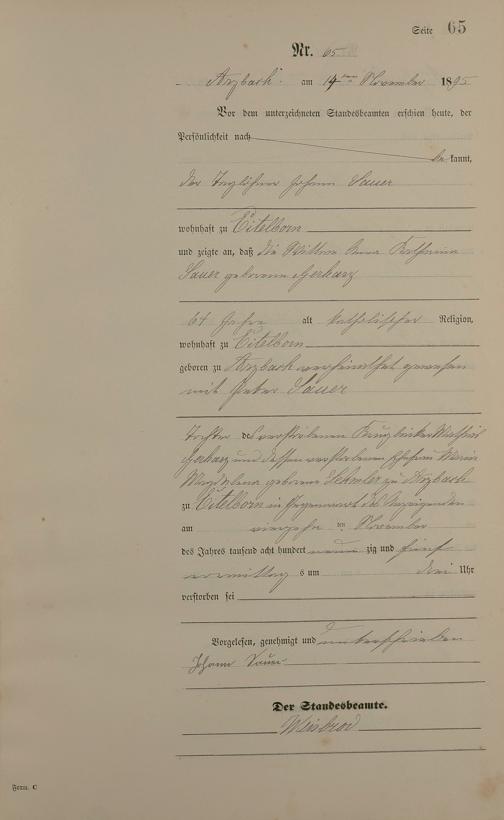 Seite 65
Nr. 65
Arzbach am 14ten November 1895
Vor dem unterzeichneten Standesbeamten erschien heute, der
Persönlichkeit nach
be kannt,
der Taglöhner Johann Sauer
wohnhaft zu Eitelborn
und zeigte an, daß die Wittwe Anna Katharina
Sauer geborene Gerharz
64 Jahre alt katholischer Religion,
wohnhaft zu Eitelborn
geboren zu Arzbach verheirathet gewesen
mit Peter Sauer
Tochter des verstorbenen Krugbäcker Mathias
Gerharz und dessen verstorbenen Ehefrau Maria
Magdalena geborene zu Arzbach
zu Eitelborn in Gegenwart des Anzeigenden
am vierzehn ten November
des Jahres tausend acht hundert neun zig und fünf
vormittag s um drei Uhr
verstorben sei
Vorgelesen, genehmigt und unterschrieben
Johann Sauer
Der Standesbeamte.
Weisbrod
Form. C